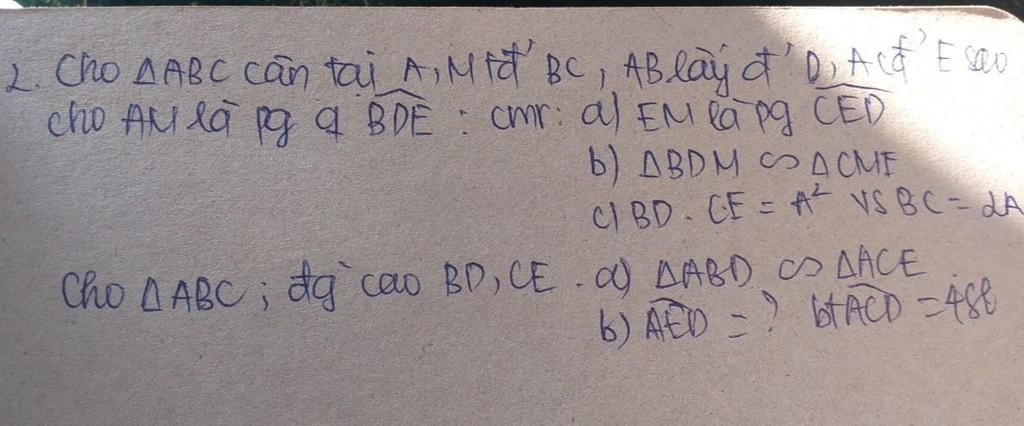 2. Cho ΔABC cân tại A, M tđ' BC, AB lấy đ' D, AC đ' E sao
cho AM là pg q BDE : cmr: a) EM là pg CED
b) ΔBDM ∽ ΔCME
c) BD. CE = A² vs BC = 2A
Cho ΔABC; đg cao BD, CE. a) ΔABD ∽ ΔACE
b) AED = ? bt ACD = 48